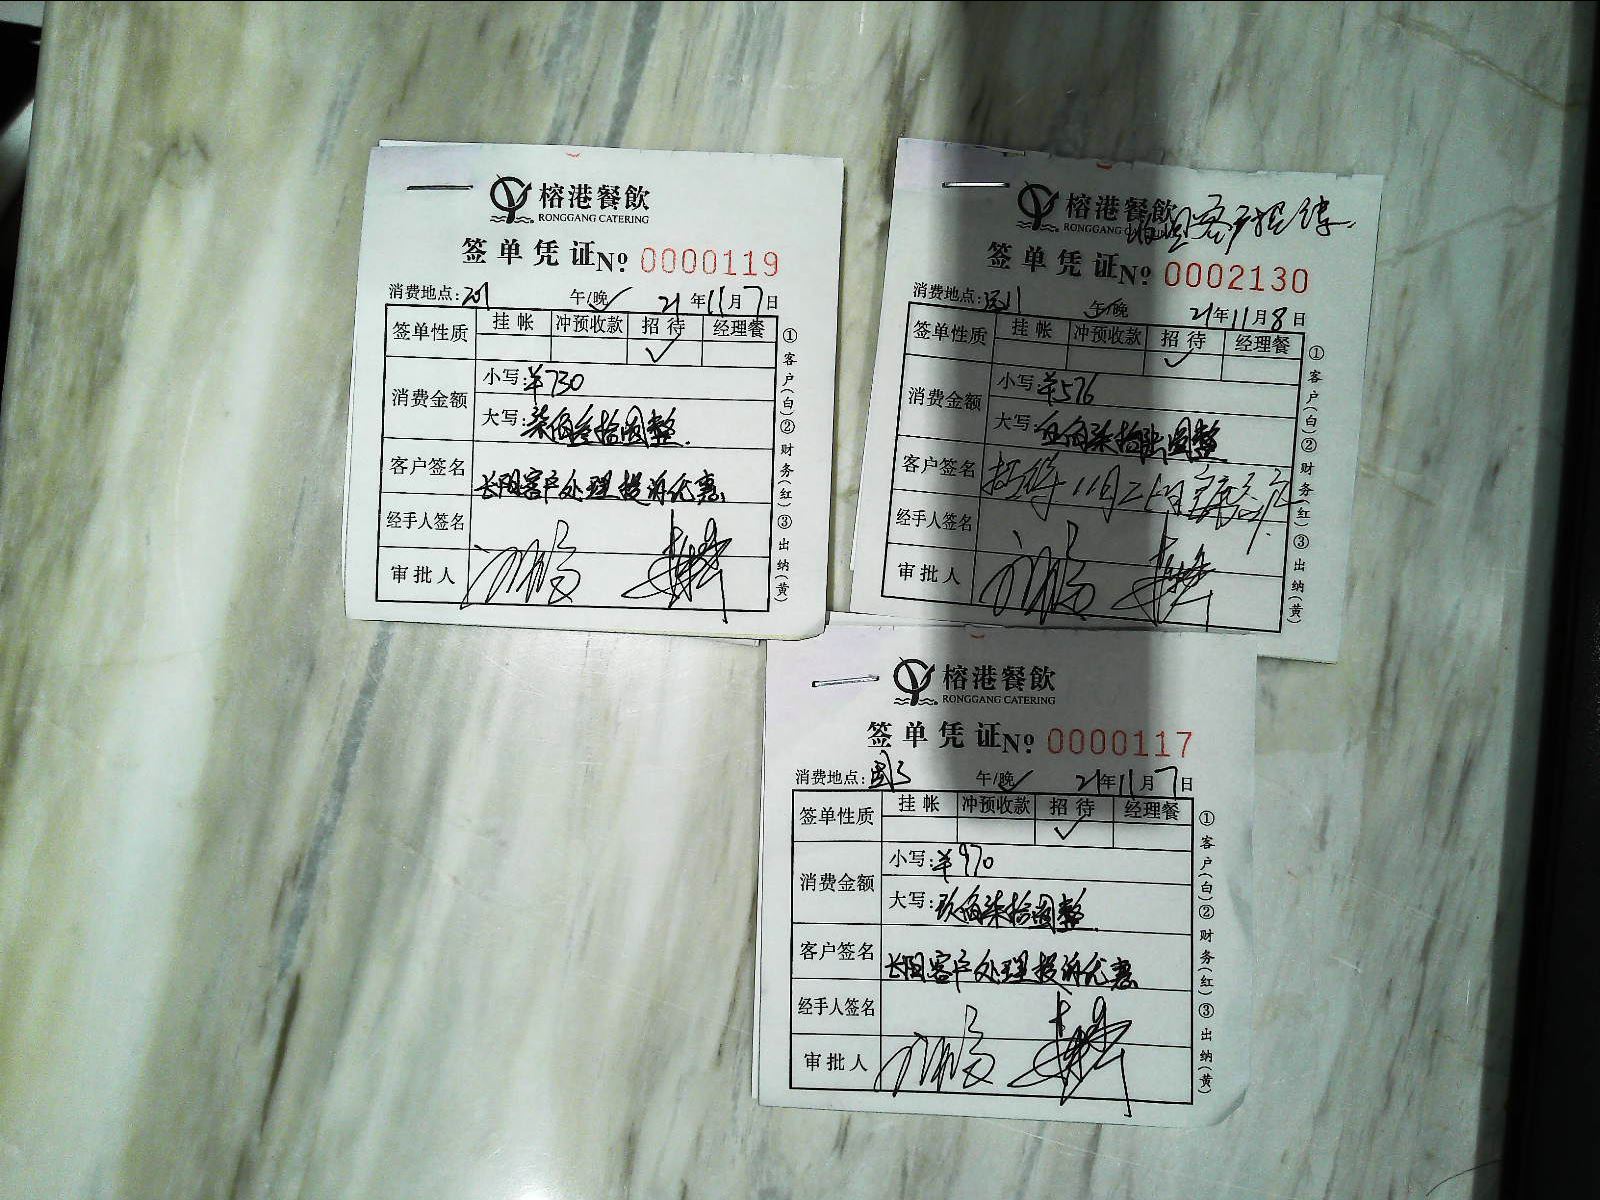 榕港餐飲
RONGGANG CATERING
签单凭证№ 0000119
消费地点:201 午/晚✓ 21年11月7日
签单性质 挂帐 冲预收款 招待 经理餐
✓
消费金额 小写:¥730
大写:柒佰叁拾圆整
客户签名 长阳客户处理投诉优惠
经手人签名
审批人
①客户(白)②财务(红)③出纳(黄)
榕港餐飲
RONGGANG CATERING
签单凭证№ 0002130
消费地点: 午/晚 21年11月8日
签单性质 挂帐 冲预收款 招待 经理餐
✓
消费金额 小写:¥576
大写:伍佰柒拾陆圆整
客户签名 11月
经手人签名
审批人
①客户(白)②财务(红)③出纳(黄)
榕港餐飲
RONGGANG CATERING
签单凭证№ 0000117
消费地点: 午/晚✓ 21年11月7日
签单性质 挂帐 冲预收款 招待 经理餐
✓
消费金额 小写:¥970
大写:玖佰柒拾圆整
客户签名 长阳客户处理投诉优惠
经手人签名
审批人
①客户(白)②财务(红)③出纳(黄)